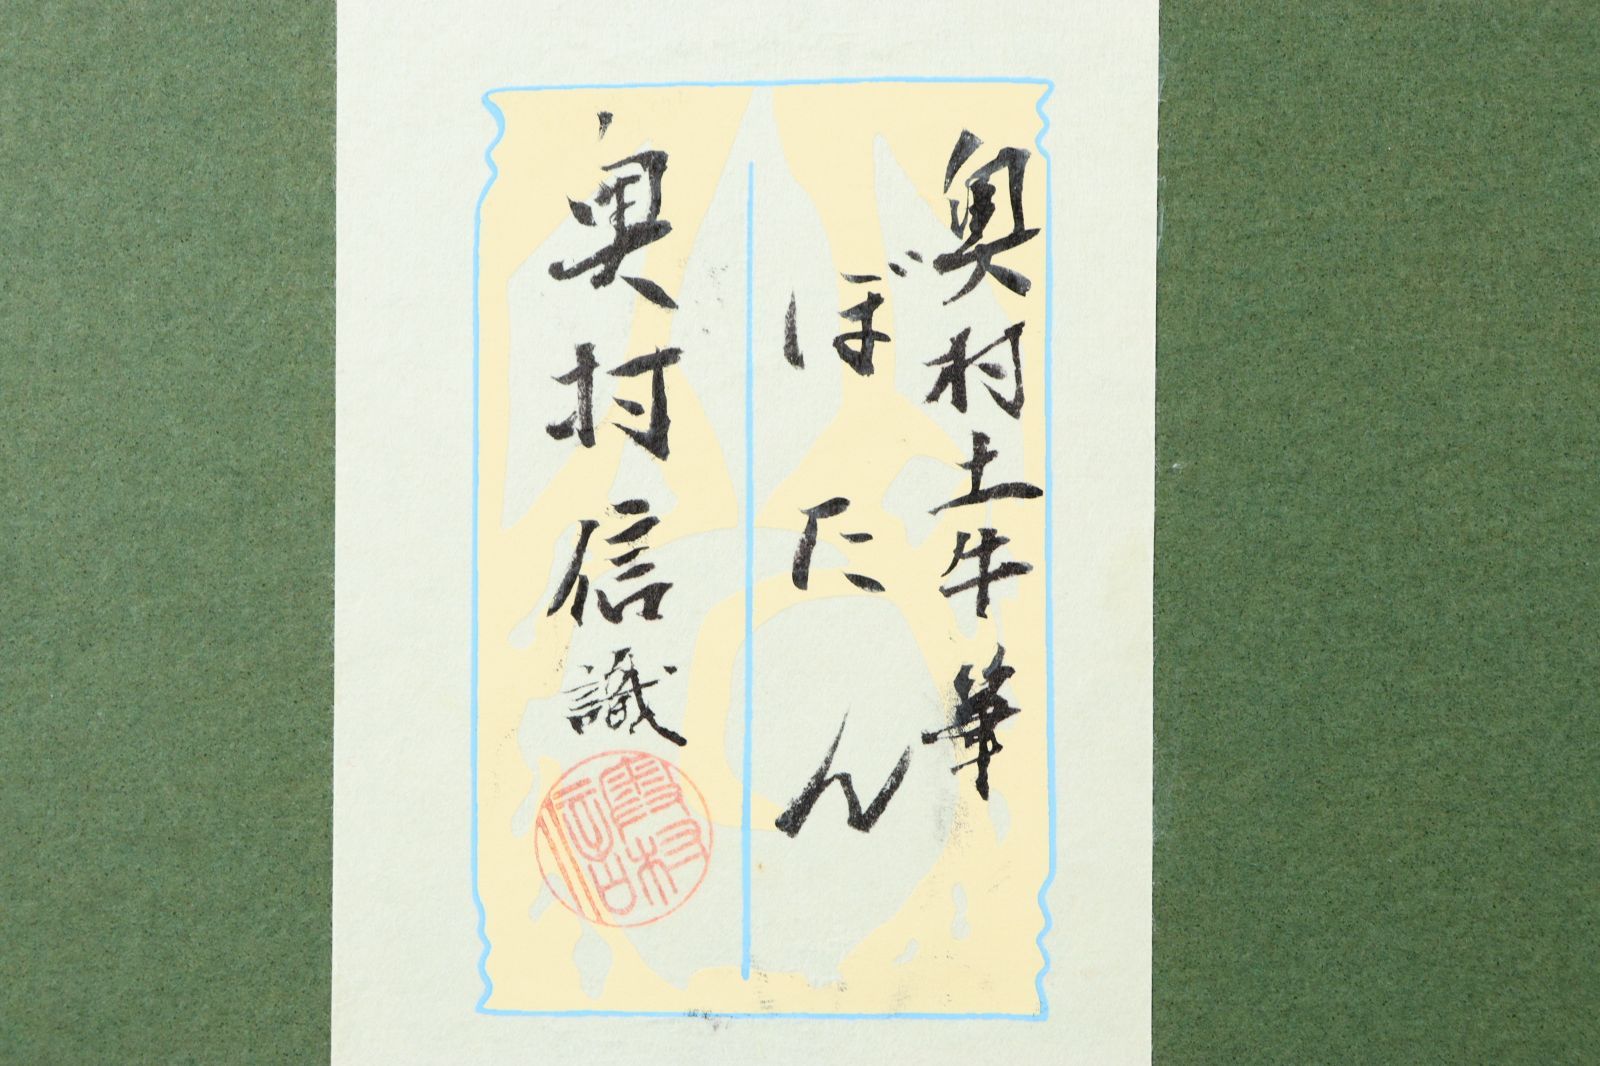 奥村土牛筆
ぼたん
奥村信識
奥村信